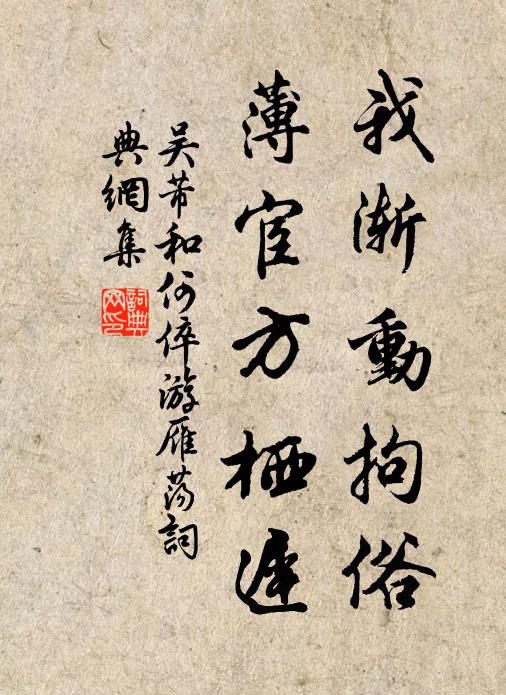 我漸動拘俗
薄宦方栖遲
吴芾和何倅游雁蕩詞
典網集
詞典網印